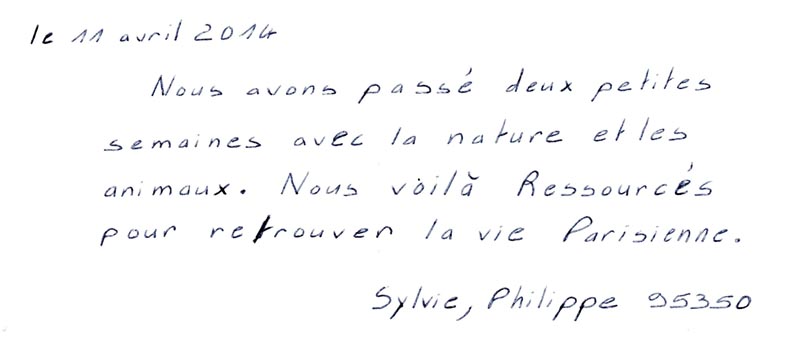 le 11 avril 2014
Nous avons passé deux petites
semaines avec la nature et les
animaux. Nous voilà Ressourcés
pour retrouver la vie Parisienne.
Sylvie, Philippe 95350